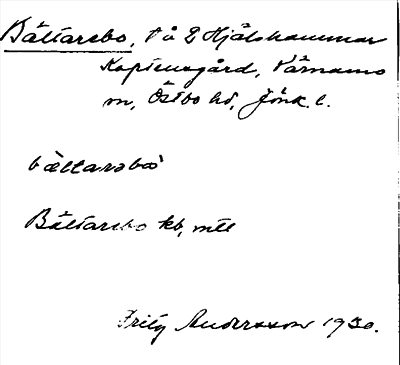 Bältarebo, t å 2 Hjälshammar
Kaptensgård, Värnamo
sn, Östbo hd, Jönk. l.
bältarəbo
Bältarebo kb, mtl
Fritz Andersson 1930.